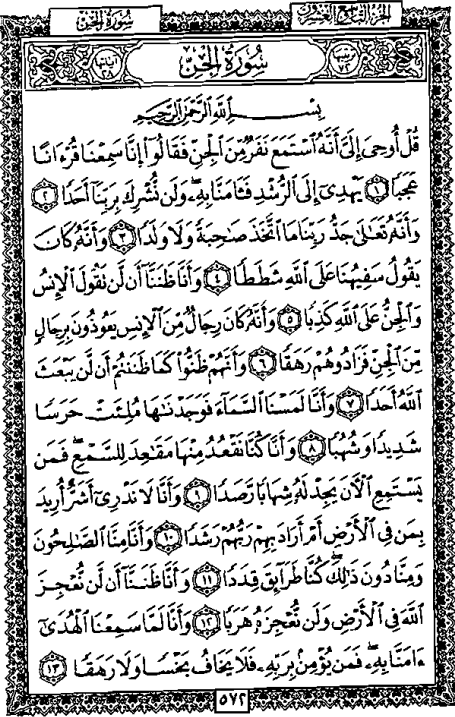 الجزء التاسع والعشرون سُورَةُ الجِنّ
ترتيبها ٧٢ سُورَةُ الجِنّ آياتها ٢٨
بِسْمِ اللَّهِ الرَّحْمَٰنِ الرَّحِيمِ
قُلْ أُوحِىَ إِلَىَّ أَنَّهُ ٱسْتَمَعَ نَفَرٌ مِّنَ ٱلْجِنِّ فَقَالُوٓا۟ إِنَّا سَمِعْنَا قُرْءَانًا
عَجَبًا ١ يَهْدِىٓ إِلَى ٱلرُّشْدِ فَـَٔامَنَّا بِهِۦ وَلَن نُّشْرِكَ بِرَبِّنَآ أَحَدًا ٢
وَأَنَّهُۥ تَعَٰلَىٰ جَدُّ رَبِّنَا مَا ٱتَّخَذَ صَٰحِبَةً وَلَا وَلَدًا ٣ وَأَنَّهُۥ كَانَ
يَقُولُ سَفِيهُنَا عَلَى ٱللَّهِ شَطَطًا ٤ وَأَنَّا ظَنَنَّآ أَن لَّن تَقُولَ ٱلْإِنسُ
وَٱلْجِنُّ عَلَى ٱللَّهِ كَذِبًا ٥ وَأَنَّهُۥ كَانَ رِجَالٌ مِّنَ ٱلْإِنسِ يَعُوذُونَ بِرِجَالٍ
مِّنَ ٱلْجِنِّ فَزَادُوهُمْ رَهَقًا ٦ وَأَنَّهُمْ ظَنُّوا۟ كَمَا ظَنَنتُمْ أَن لَّن يَبْعَثَ
ٱللَّهُ أَحَدًا ٧ وَأَنَّا لَمَسْنَا ٱلسَّمَآءَ فَوَجَدْنَٰهَا مُلِئَتْ حَرَسًا
شَدِيدًا وَشُهُبًا ٨ وَأَنَّا كُنَّا نَقْعُدُ مِنْهَا مَقَٰعِدَ لِلسَّمْعِ فَمَن
يَسْتَمِعِ ٱلْـَٔانَ يَجِدْ لَهُۥ شِهَابًا رَّصَدًا ٩ وَأَنَّا لَا نَدْرِىٓ أَشَرٌّ أُرِيدَ
بِمَن فِى ٱلْأَرْضِ أَمْ أَرَادَ بِهِمْ رَبُّهُمْ رَشَدًا ١٠ وَأَنَّا مِنَّا ٱلصَّٰلِحُونَ
وَمِنَّا دُونَ ذَٰلِكَ كُنَّا طَرَآئِقَ قِدَدًا ١١ وَأَنَّا ظَنَنَّآ أَن لَّن نُّعْجِزَ
ٱللَّهَ فِى ٱلْأَرْضِ وَلَن نُّعْجِزَهُۥ هَرَبًا ١٢ وَأَنَّا لَمَّا سَمِعْنَا ٱلْهُدَىٰٓ
ءَامَنَّا بِهِۦ فَمَن يُؤْمِنۢ بِرَبِّهِۦ فَلَا يَخَافُ بَخْسًا وَلَا رَهَقًا ١٣
٥٧٢